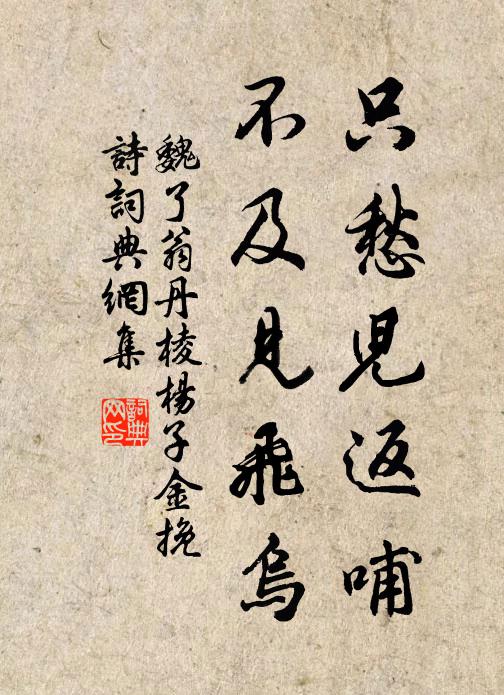 只愁兒返哺
不及見飛烏
魏了翁丹棱楊子金挽
詩詞典網集
詞典網印